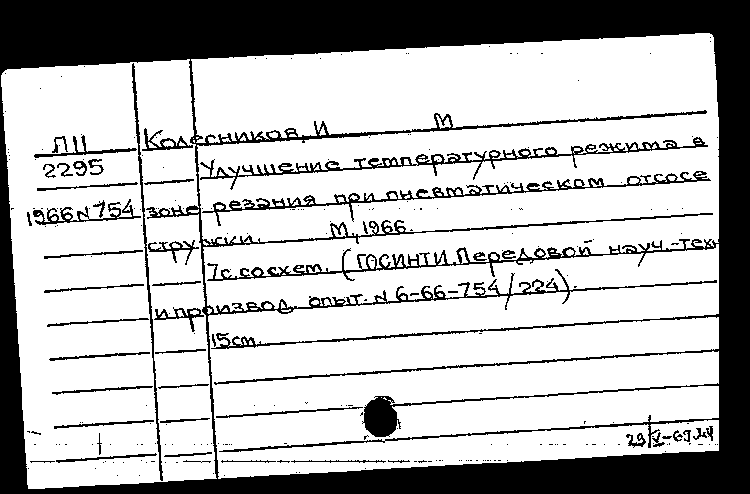 П11 Колесников, И М
2295 Улучшение температурного режима в
1966 N 754 зоне резания при пневматическом отсосе
стружки. М., 1966.
7с. со схем. (ГОСИНТИ. Передовой науч.-техн
и производ. опыт. N 6-66-754/224).
15см.